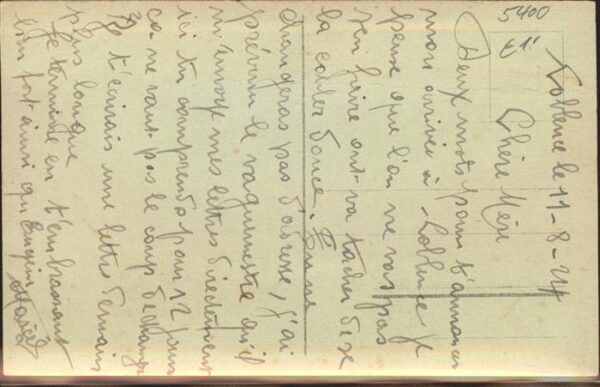 5400
Coblence le 11-8-24
Chère Mère
Deux mots pour t'annoncer
mon arrivée à Coblence je
pense que l'on ne vas pas
s'en faire ont va tacher de se
la couler douce. Tu ne
changeras pas d'adresse, j'ai
prévenu le vaguemestre qu'il
m'envoye mes lettres directement
ici tu comprends pour 12 jours
ca ne vaut pas le coup de changer
Je t'écrirais une lettre demain
plus longue
Je termine en t'embrassant
bien fort ainsi qu'
Marcel